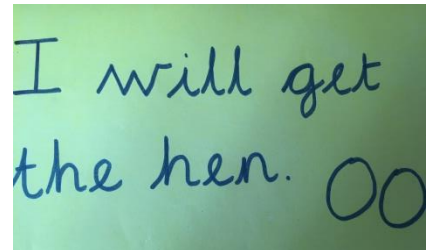 I will get
the hen. OO